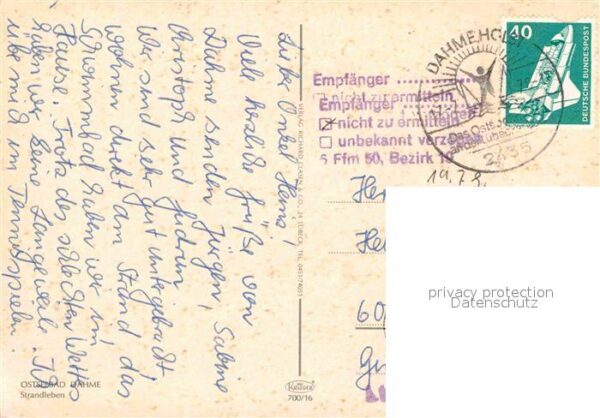 Lieber Onkel Hans!
Viele herzliche Grüße von
Dahme senden Jürgen, Sabine
Christoph und Gudrun
Wir sind sehr gut untergebracht
wohnen direkt am Strand das
Schwimmbad haben wir im
Hause. Trotz des schlechten Wetters
haben wir keine Langeweile. Wir
üben uns im Tennisspielen.
OSTSEEBAD DAHME
Strandleben
VERLAG RICHARD CLASEN & CO., 24 LÜBECK, TEL. 0451/74051
700/16
Empfänger
nicht zu ermitteln
Empfänger
nicht zu ermitteln
unbekannt verzogen
6 Ffm 50, Bezirk
DAHME, HOLST
2435
40
DEUTSCHE BUNDESPOST
privacy protection
Datenschutz